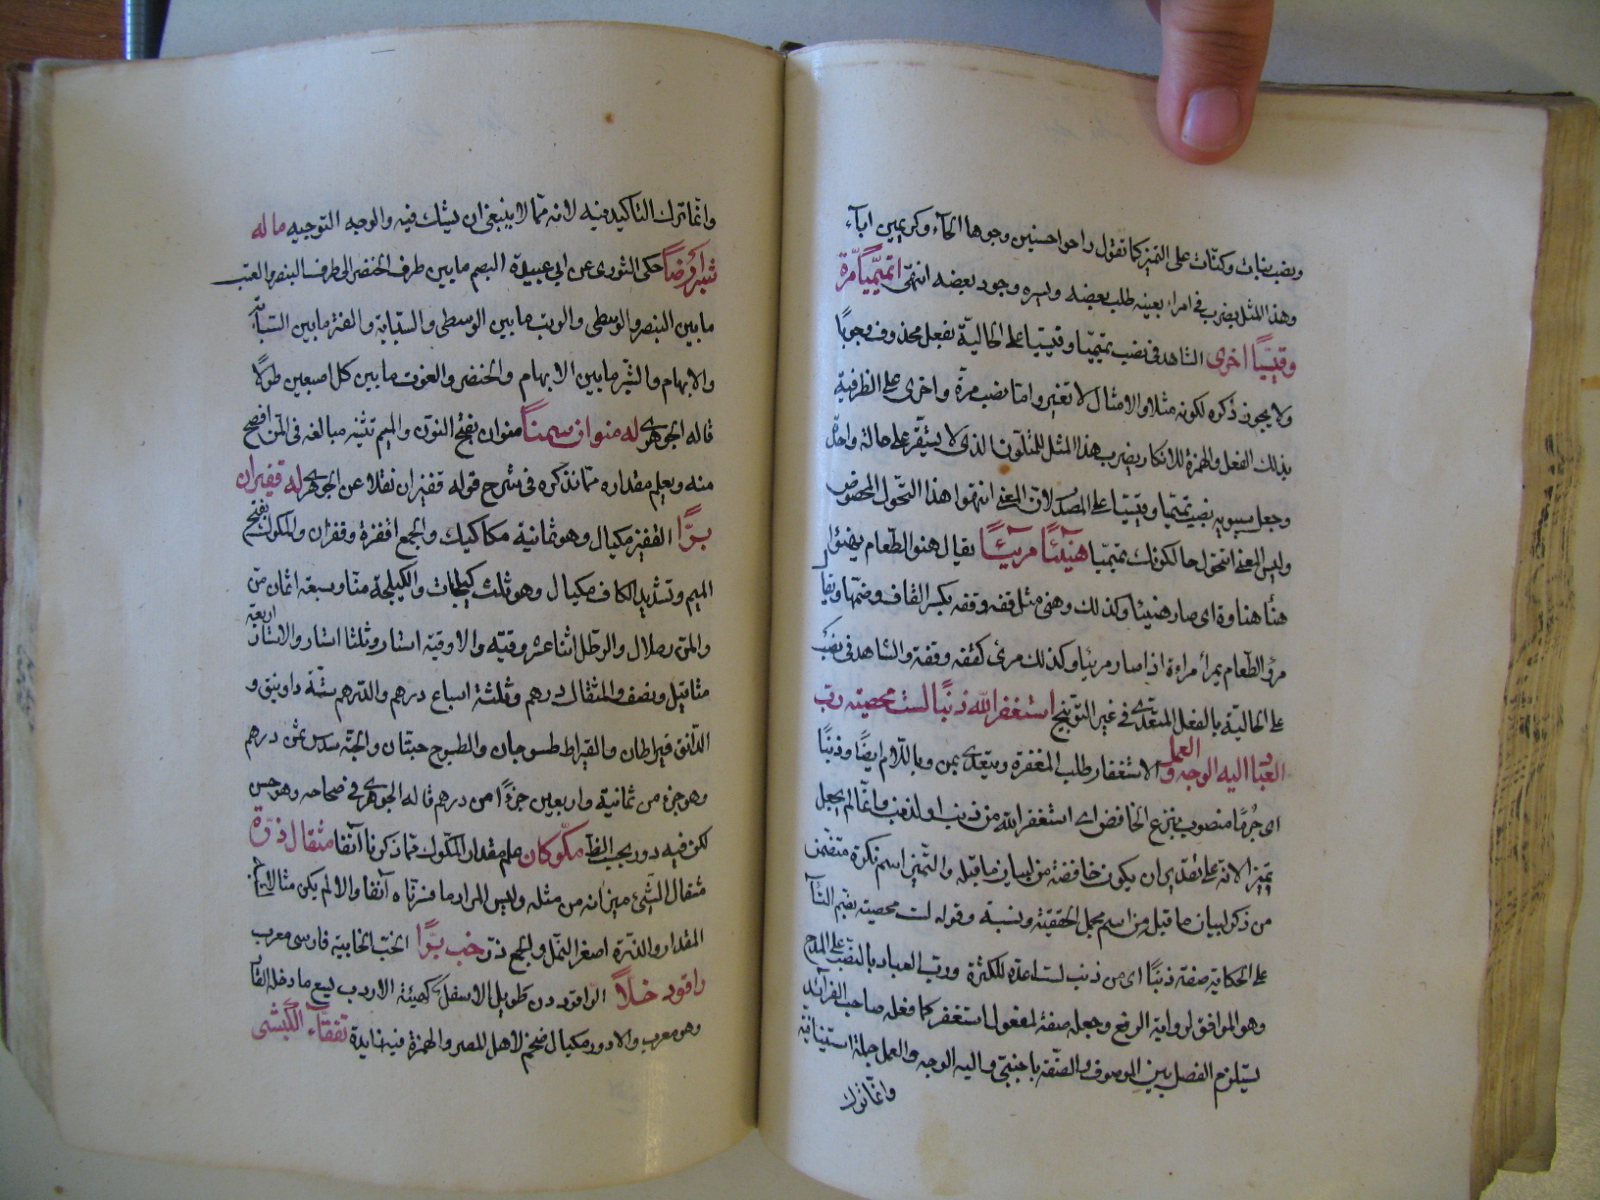 ونصب بنات وكنات على التميز كما تقول راحوا حسنين وجوها الحآء وكريمين اباء
وهذا المثل يضرب في امراء بعينه طلب بعضه ويسره وجود بعضه انتهى اتميميّاً مرّة
وقيسيّاً اخرى الشاهد في نصب تميميّا وقيسيا على الحاليّة بفعل محذوف وجوبًا
ولا يجوز ذكره لكونه مثلا والامثال لا تغير واما نصب مرّة واخرى على الظرفية
بذلك الفعل والهمزة للانكار يضرب هذا المثل للمتلون الذى لا يستقر على حالة واحدة
وجعل سيبويه نصب تميميا وقيسيا على المصدر لان المعنى اتتحول هذا التحول المخصوص
وليس المعنى اتتحول حال كونك تميميا هنيئًا مريئًا يقال هنؤ الطعام يهنؤا
هنأ هناوة اى صار هنيئا وكذلك وهنى مثل فقه وفقه بكسر القاف وضمها ويقال
مرؤ الطعام يمرأ مراءة اذا صار مريئا وكذلك مرئ كفقه وفقه والشاهد في نصب
على الحالية بالفعل المتعدى في غير التوبيخ استغفر الله ذنبًا لست محصيه رب
العباد اليه الوجه والعمل الاستغفار طلب المغفرة ويتعدى بمن وباللام ايضًا وذنبًا
اى جُرمًا منصوب بنزع الخافض اى استغفر الله من ذنب او لذنب وانما لم يجعل
تميزا لانه على تقديران يكون خافضة من لبيان ما قبله والتميز اسم نكرة متضمن
من ذكر لبيان ما قبل من اسم مجمل الحقيقة ونسبة وقوله لست محصيه بضم التآء
على الحكاية صفة ذنبًا اى من ذنب لست اعده للكثرة ورب العباد بالنصب على المدح
وهو الموافق لرواية الرفع وجعله صفة لمفعول استغفر كما فعله صاحب الفرائد
يستلزم الفصل بين الموصوف والصفة باجنبى واليه الوجه والعمل جملة استينافية
وانما ترك
وانما ترك التاكيد فيه لانه مما لا ينبغى ان يشك فيه والوجه التوجيه ما له
شبر ارضاً حكى الثورى عن ابى عبيدة البصم ما بين طرف الخنصر الى طرف البنصر والعتب
ما بين البنصر والوسطى والرتب ما بين الوسطى والسبابة والفتر ما بين السبابة
والابهام والشبر ما بين الابهام والخنصر والفوت ما بين كل اصبعين طولًا
قاله الجوهرى له منوان سمناً منوان بفتح النون والميم تثنية منا لغة في المن افصح
منه ويعلم مقداره مما نذكره في شرح قوله قفيزان نقلا عن الجوهرى له قفيزان
برّا القفيز مكيال وهو ثمانية مكاكيك والجمع اقفزة وقفزان والمكوك بفتح
الميم وتشديد الكاف مكيال وهو ثلث كيلجات والكيلجة منا وسبعة اثمان من
والمن رطلان والرطل اثنا عشر وقية والاوقية استار وثلثا استار والاستار اربعة
مثاقيل ونصف والمثقال درهم وثلثة اسباع درهم والدرهم ستة دوانيق و
الدانق قيراطان والقيراط طسوجان والطسوج حبتان والحبة سدس ثمن درهم
وهو جزء من ثمانية واربعين جزءً من درهم قاله الجوهرى في صحاحه وهو حسن
لكن فيه دور بحسب الظآ مكّوكان علم مقدار المكوك مما ذكرنا آنفا مثقال ذرة
مثقال الشئ ميزانه من مثله وليس المراد ما فسرناه آنفا والا لم يكن مثالا
المقدار والذرة اصغر النمل والجمع ذرّ خب برّا الخب الخابية فارسى معرب
راقود خلاً الراقود دن طويل الاسفل كهيئة الاردب يسيع ما دخله القآ
وهو معرب والاردب مكيال ضخم لاهل المصر والهمزة فيه زايدة تفقاء الكبشى